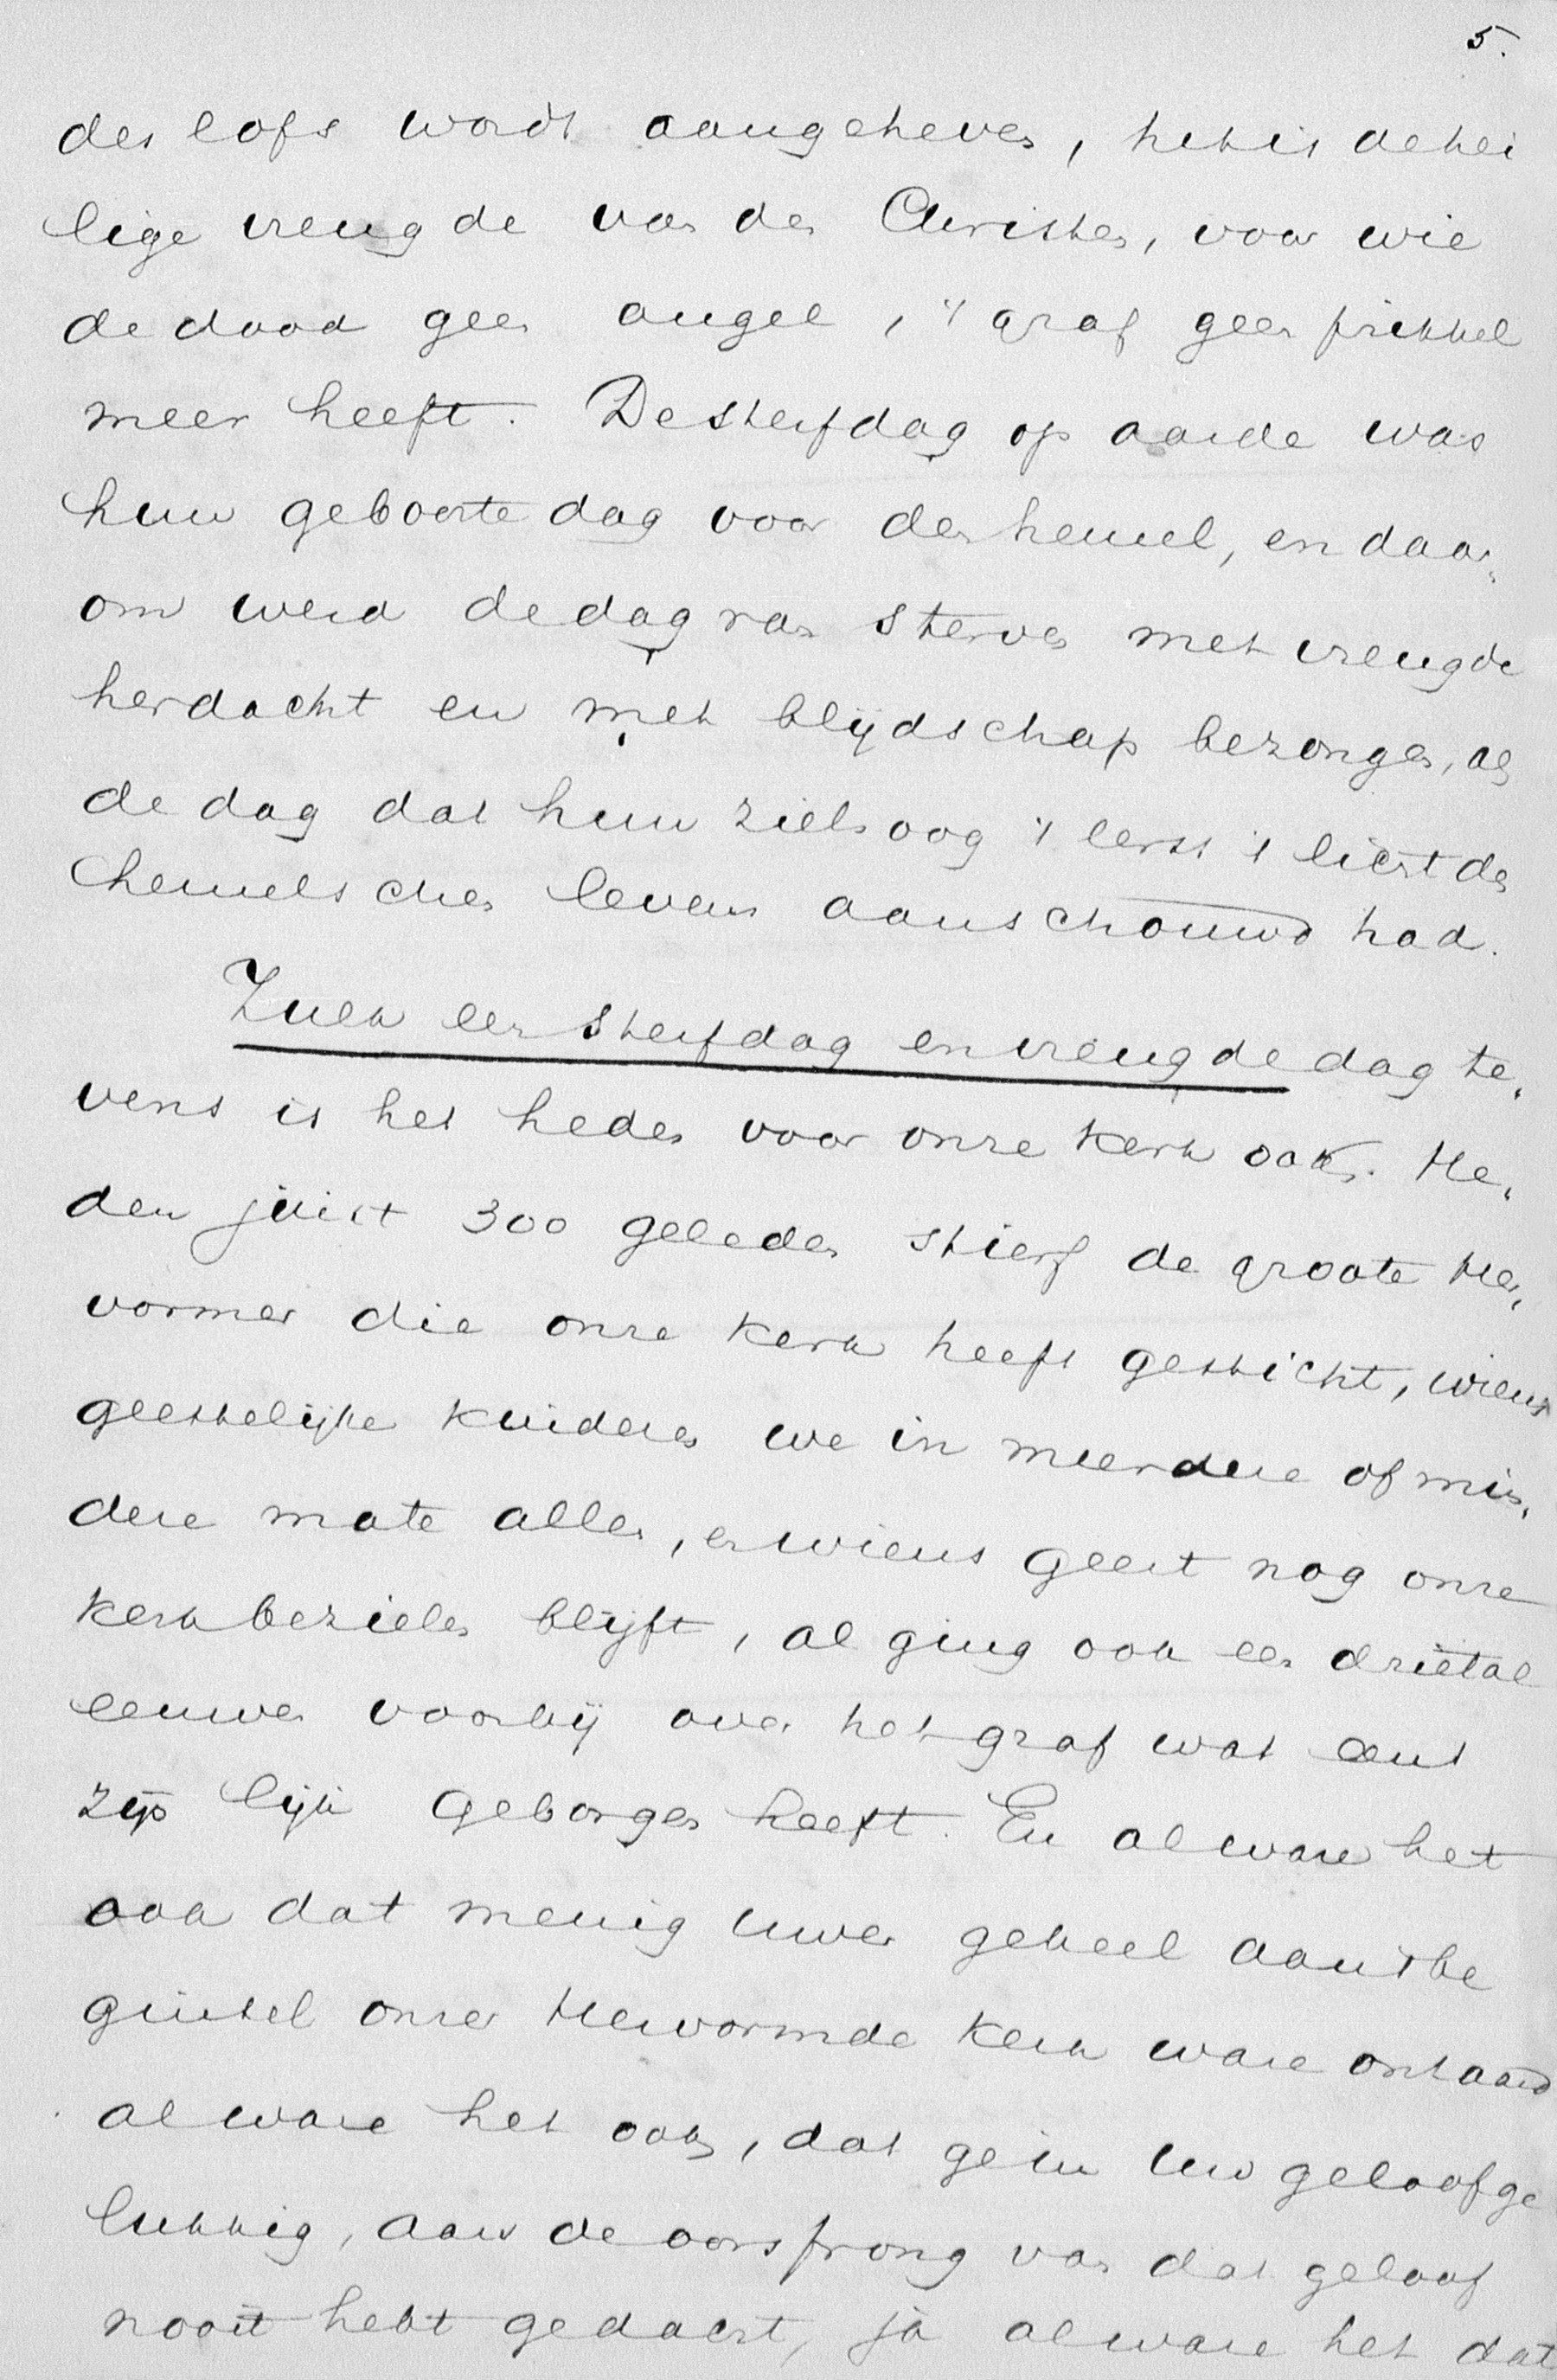 5.
des lofs wordt aangeheven, het is de hei
lige vreugde van den Christen, voor wie
de dood geen angel, 't graf geen prikkel
meer heeft. De sterfdag op aarde was
hun geboorte dag voor den hemel, en daar„
om werd de dag van sterven met vreugde
herdacht en met blijdschap bezongen, als
de dag dat hun zielsoog 't eerst 't licht des
hemelschen levens aanschouwd had.
Zulk een sterfdag en vreugdedag te„
vens is het heden voor onze kerk ook. He„
den juist 300 geleden stierf de groote Her„
vormer die onze kerk heeft gesticht, wiens
geestelijke kinderen we in meerdere of min„
dere mate allen, en wiens geest nog onze
kerk bezielen blijft, al ging ook een drietal
eeuwen voorbij over het graf wat eens
zijn lijk geborgen heeft. En al ware het
ook dat menig uwer geheel aan 't be
ginsel onzer Hervormde kerk ware ontaard
al ware het ook, dat ge in uw geloof ge
lukkig, aan de oorsprong van dat geloof
nooit hebt gedacht, ja al ware het dat